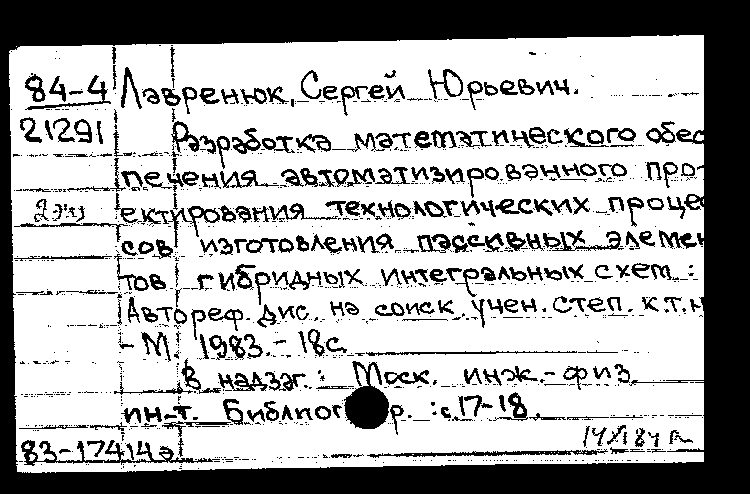 84-4 Лавренюк, Сергей Юрьевич.
21291 Разработка математического обес
печения автоматизированного про-
2 экз ектирования технологических процес
сов изготовления пассивных элемен
тов гибридных интегральных схем :
Автореф. дис. на соиск. учен. степ. к.т.н
- М. 1983. - 18с.
В надзаг.: Моск. инж.-физ.
ин-т. Библиогр. : с.17-18.
83-17414а